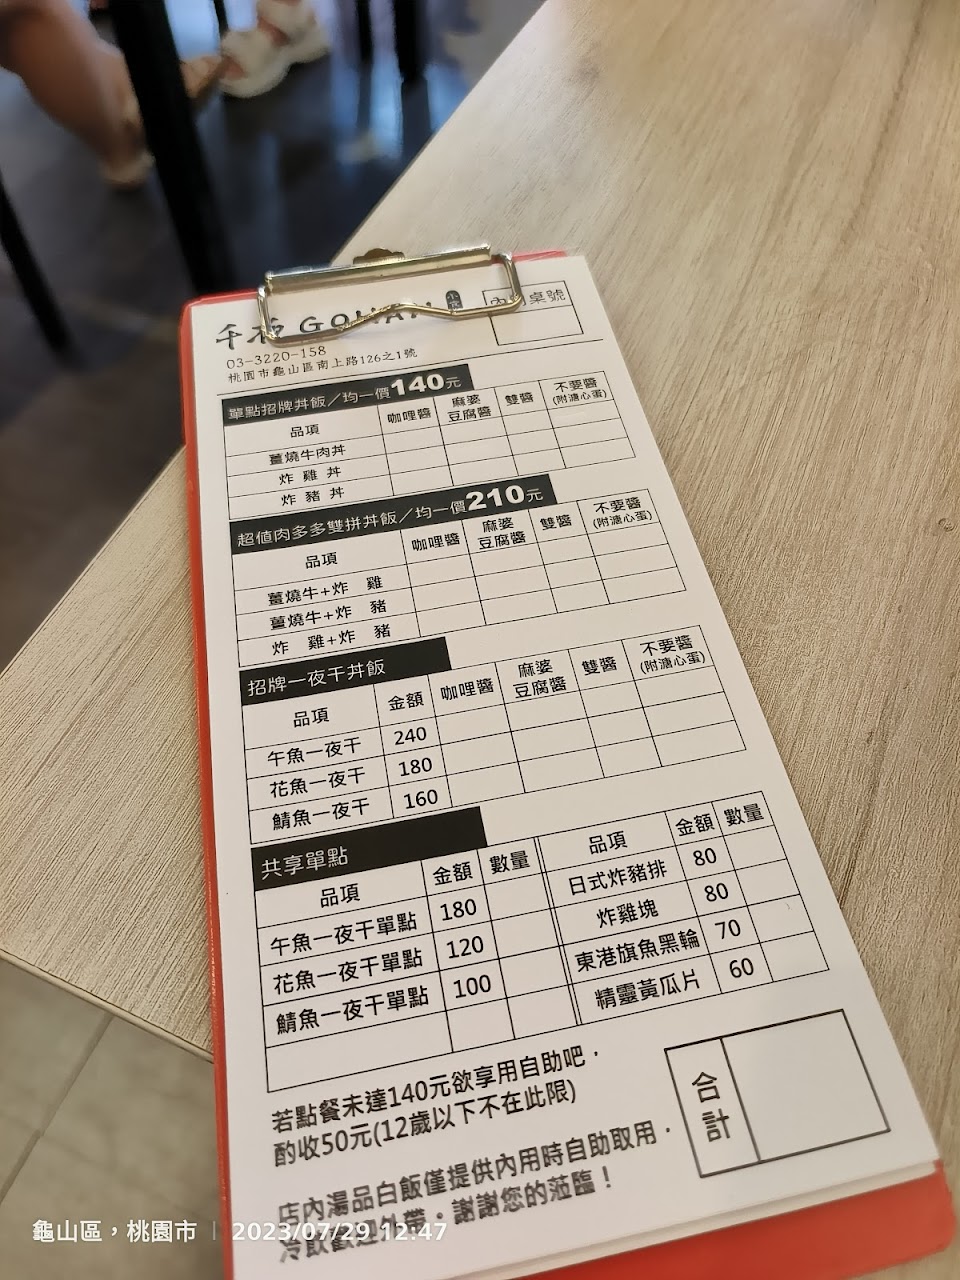 千 GOHAN 小食 內用桌號
03-3220-158
桃園市龜山區南上路126之1號
單點招牌丼飯／均一價140元
品項 咖哩醬 麻婆豆腐醬 雙醬 不要醬(附溏心蛋)
薑燒牛肉丼
炸 雞 丼
炸 豬 丼
超值肉多多雙拼丼飯／均一價210元
品項 咖哩醬 麻婆豆腐醬 雙醬 不要醬(附溏心蛋)
薑燒牛+炸 雞
薑燒牛+炸 豬
炸 雞+炸 豬
招牌一夜干丼飯
品項 金額 咖哩醬 麻婆豆腐醬 雙醬 不要醬(附溏心蛋)
午魚一夜干 240
花魚一夜干 180
鯖魚一夜干 160
共享單點
品項 金額 數量 品項 金額 數量
午魚一夜干單點 180 日式炸豬排 80
花魚一夜干單點 120 炸雞塊 80
鯖魚一夜干單點 100 東港旗魚黑輪 70
精靈黃瓜片 60
若點餐未達140元欲享用自助吧，
酌收50元(12歲以下不在此限)
合計
店內湯品白飯僅提供內用時自助取用，
冷飲歡迎外帶，謝謝您的蒞臨！
龜山區，桃園市 | 2023/07/29 12:47